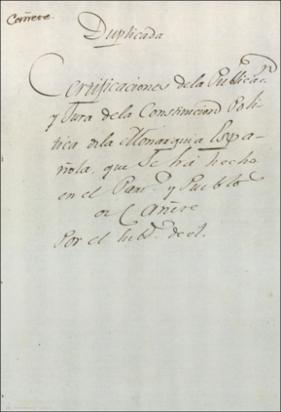 Cañere.
Duplicada
Certificaciones dela Publicac.n
y Jura dela Constitucion Poli
tica dela Monarquia Espa-
ñola, que Se há hecho
en el Par.o y Pueblo
de Cañere
Por el de el.